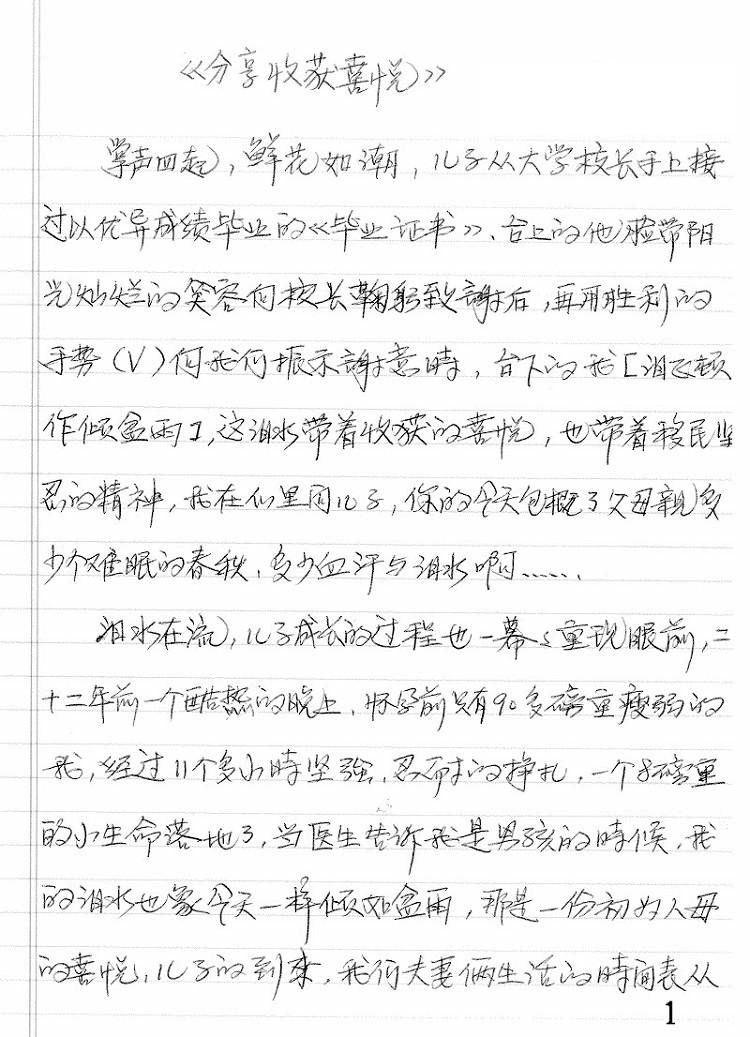 《分享收获喜悦》
掌声四起，鲜花如潮，儿子从大学校长手上接
过以优异成绩毕业的《毕业证书》、台上的他脸带阳
光灿烂的笑容向校长鞠躬致謝后，再用胜利的
手势（V）向我们振示謝意時，台下的我［泪飞顿
作倾盆雨］，这泪水带着收获的喜悦，也带着移民坚
忍的精神，我在心里问儿子，你的今天包概了父母親多
少个难眠的春秋，多少血汗与泪水啊……
泪水在流，儿子成长的过程也一幕々重现眼前，二
十二年前一个酷热的晚上，怀孕前只有90多磅重瘦弱的
我，经过11个多小時坚强，忍耐的挣扎，一个8磅重
的小生命落地了，当医生告诉我是男孩的時候，我
的泪水也象今天一样倾如盆雨，那是一份初为人母
的喜悦，儿子的到来，我们夫妻俩生活的時间表从
1